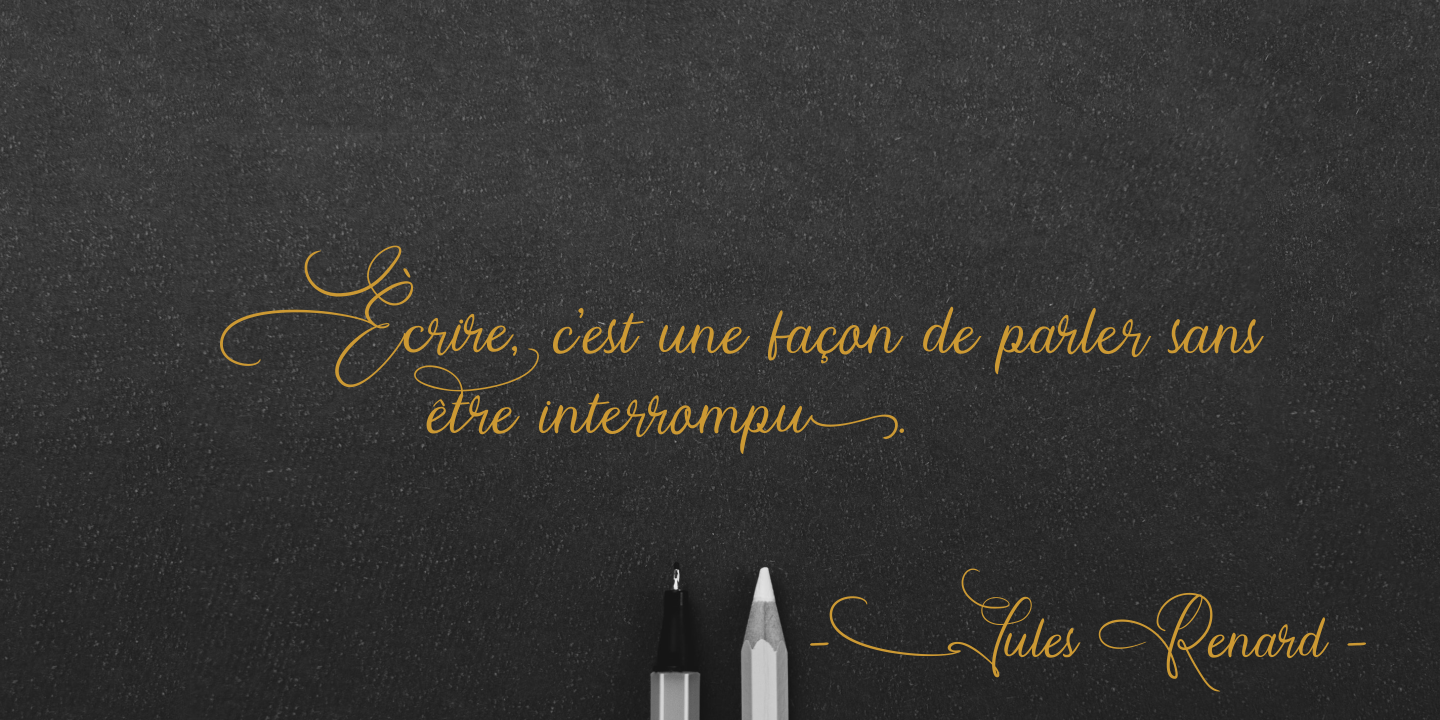 Ècrire, c'est une façon de parler sans
être interrompu.
- Jules Renard -